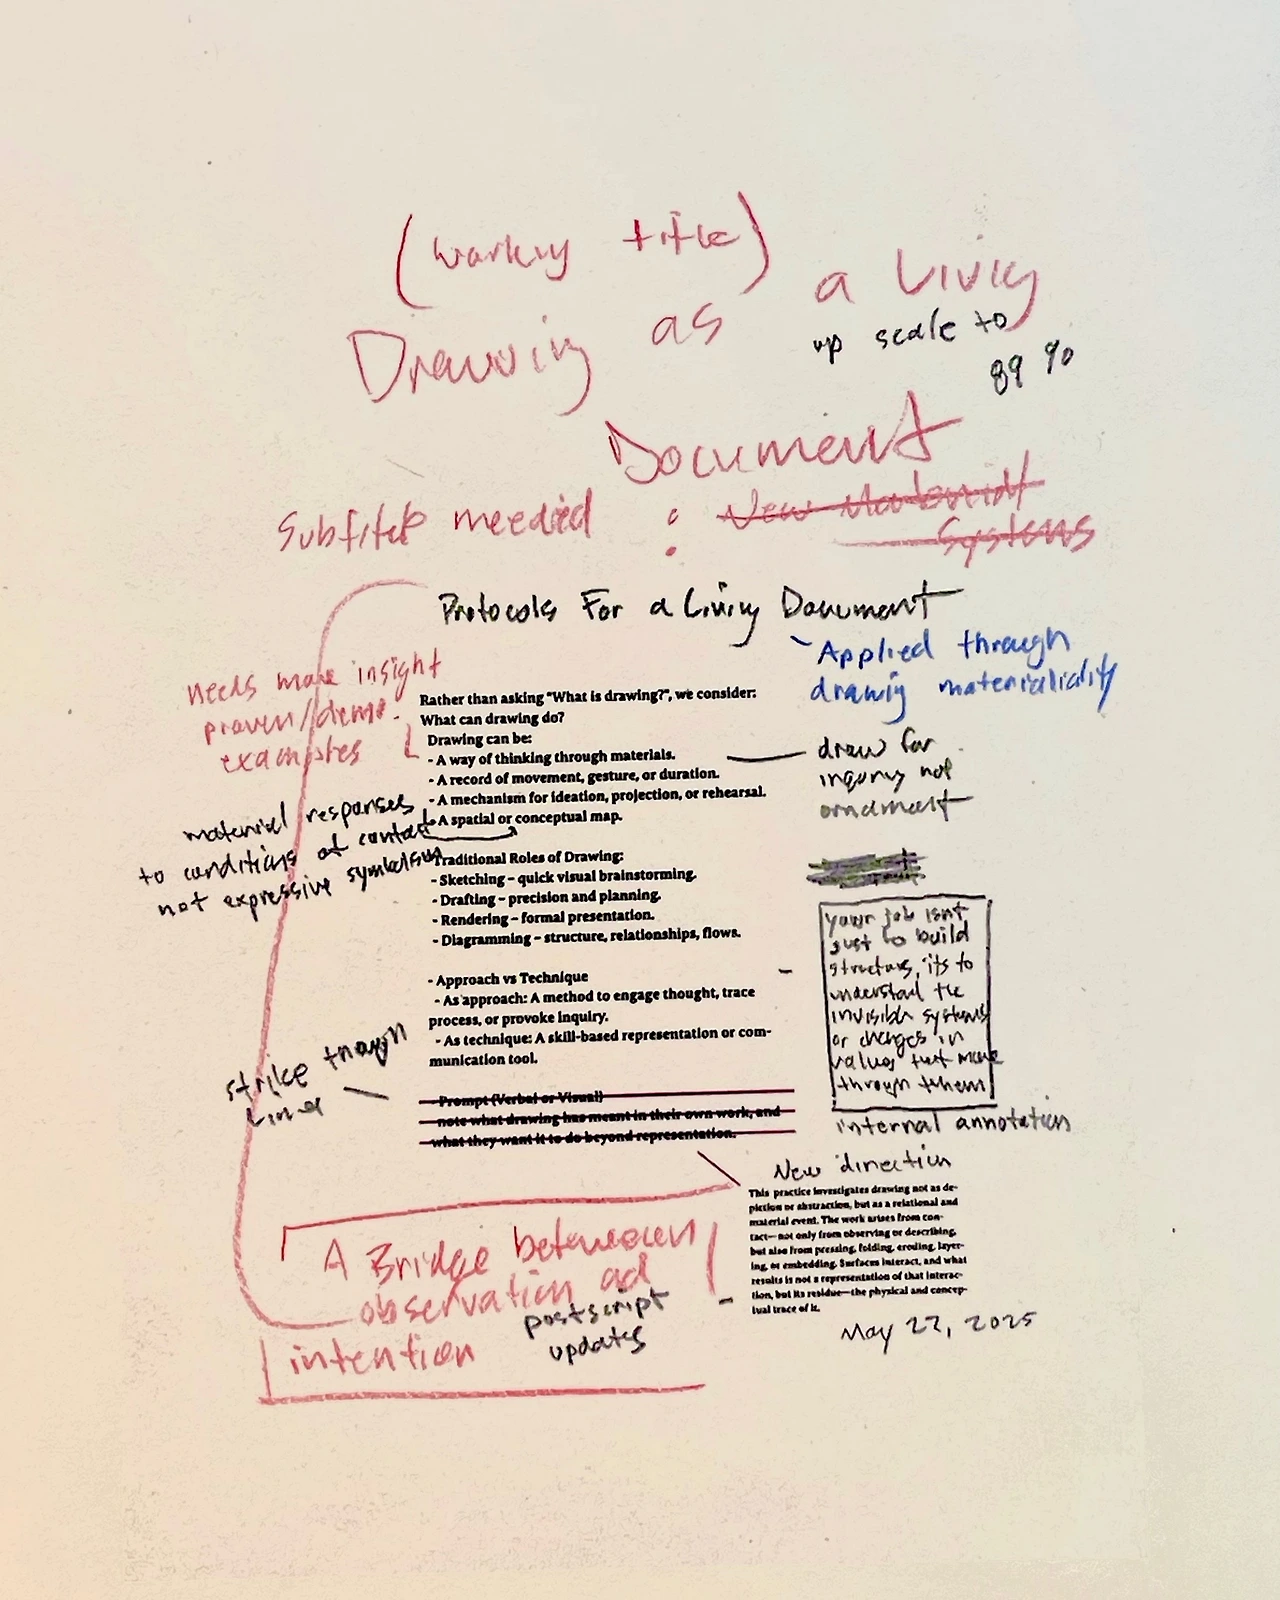 (working title)
Drawing as a Living
up scale to
89 %
Document
Subtitle needed : New Material
Systems
Protocols For a Living Document
Applied through
drawing materiality
needs more insight
proven/demo.
examples
Rather than asking "What is drawing?", we consider:
What can drawing do?
Drawing can be:
- A way of thinking through materials.
- A record of movement, gesture, or duration.
- A mechanism for ideation, projection, or rehearsal.
- A spatial or conceptual map.
draw for
inquiry not
ornament
material responses
to conditions of contact
not expressive symbolism
Traditional Roles of Drawing:
- Sketching – quick visual brainstorming.
- Drafting – precision and planning.
- Rendering – formal presentation.
- Diagramming – structure, relationships, flows.
- Approach vs Technique
- As approach: A method to engage thought, trace
process, or provoke inquiry.
- As technique: A skill-based representation or com-
munication tool.
your job isn't
just to build
structures, its to
understand the
invisible systems
or changes in
values that move
through them
internal annotation
strike trough
Lines
- Prompt (Verbal or Visual)
note what drawing has meant in their own work, and
what they want it to do beyond representation.
New direction
This practice investigates drawing not as de-
piction or abstraction, but as a relational and
material event. The work arises from con-
tact—not only from observing or describing,
but also from pressing, folding, eroding, layer-
ing, or embedding. Surfaces interact, and what
results is not a representation of that interac-
tion, but its residue—the physical and concep-
tual trace of it.
May 22, 2025
A Bridge between
observation ad
intention
postscript
updates